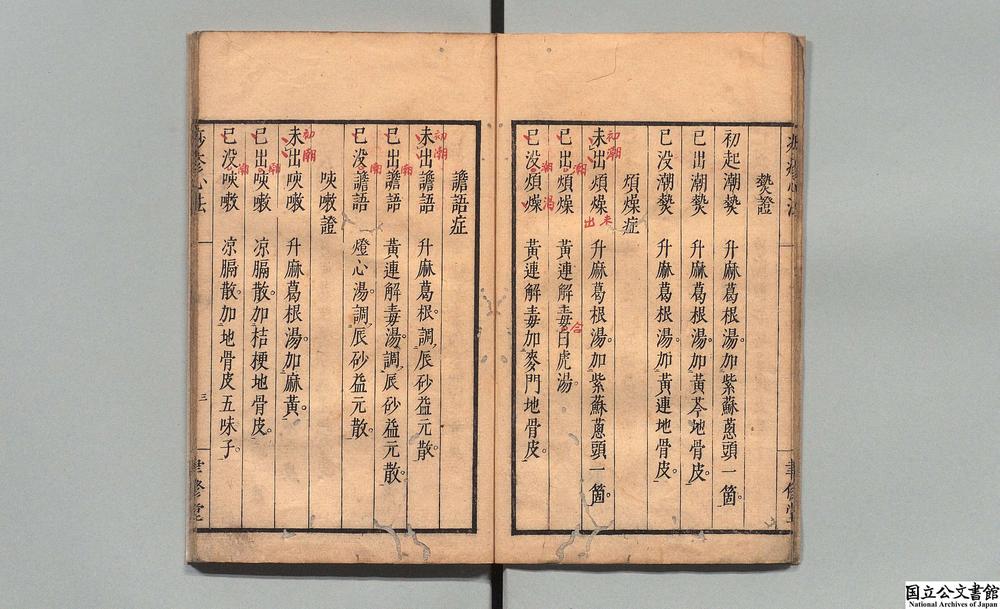 熱證
初起潮熱 升麻葛根湯。加紫蘇蔥頭一箇。
已出潮熱 升麻葛根湯。加黃芩地骨皮。
已没潮熱 升麻葛根湯。加黃連地骨皮。
煩燥症
未出煩燥 升麻葛根湯。加紫蘇蔥頭一箇。
初潮
未出
已出煩燥 黃連解毒白虎湯。
潮
合
已没煩燥 黃連解毒加麥門地骨皮。
潮
渴
譫語症
未出譫語 升麻葛根。調辰砂益元散。
初潮
已出譫語 黃連解毒湯。調辰砂益元散。
潮
已没譫語 燈心湯。調辰砂益元散。
潮
咳嗽證
未出咳嗽 升麻葛根湯。加麻黃。
初潮
已出咳嗽 凉膈散。加桔梗地骨皮。
潮
已没咳嗽 凉膈散加地骨皮五味子。
潮
三
聿修堂
国立公文書館
National Archives of Japan